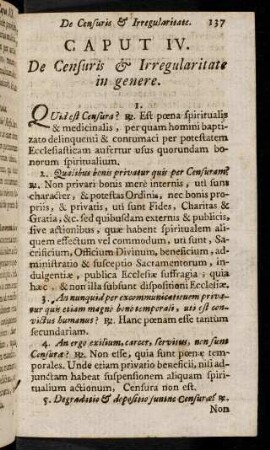 De Censuris & Irregularitate. 137
CAPUT IV.
De Censuris & Irregularitate
in genere.
1.
QUid est Censura? ℞. Est pœna spiritualis
& medicinalis, per quam homini bapti-
zato delinquenti & contumaci per potestatem
Ecclesiasticam aufertur usus quorundam bo-
norum spiritualium.
2. Qualibus bonis privatur quis per Censuram?
℞. Non privari bonis merè internis, uti sunt
character, & potestas Ordinis, nec bonis pro-
priis, & privatis, uti sunt Fides, Charitas &
Gratia, &c. sed quibusdam externis & publicis,
sive actionibus, quæ habent spiritualem ali-
quem effectum vel commodum, uti sunt, Sa-
crificium, Officium Divinum, beneficium, ad-
ministratio & susceptio Sacramentorum, in-
dulgentiæ, publica Ecclesiæ suffragia; quia
hæc & non illa subsunt dispositioni Ecclesiæ.
3. An nunquid per excommunicationem priva-
tur quis etiam magno bono temporali, uti est con-
victus humanus? ℞. Hanc pœnam esse tantùm
secundariam.
4. An ergo exilium, carcer, servitus, non sunt
Censuræ? ℞. Non esse, quia sunt pœnæ tem-
porales. Unde etiam privatio beneficii, nisi ad-
junctam habeat suspensionem aliquam spiri-
tualium actionum, Censura non est.
5. Degradatio & depositio suntne Censuræ? ℞.
Non